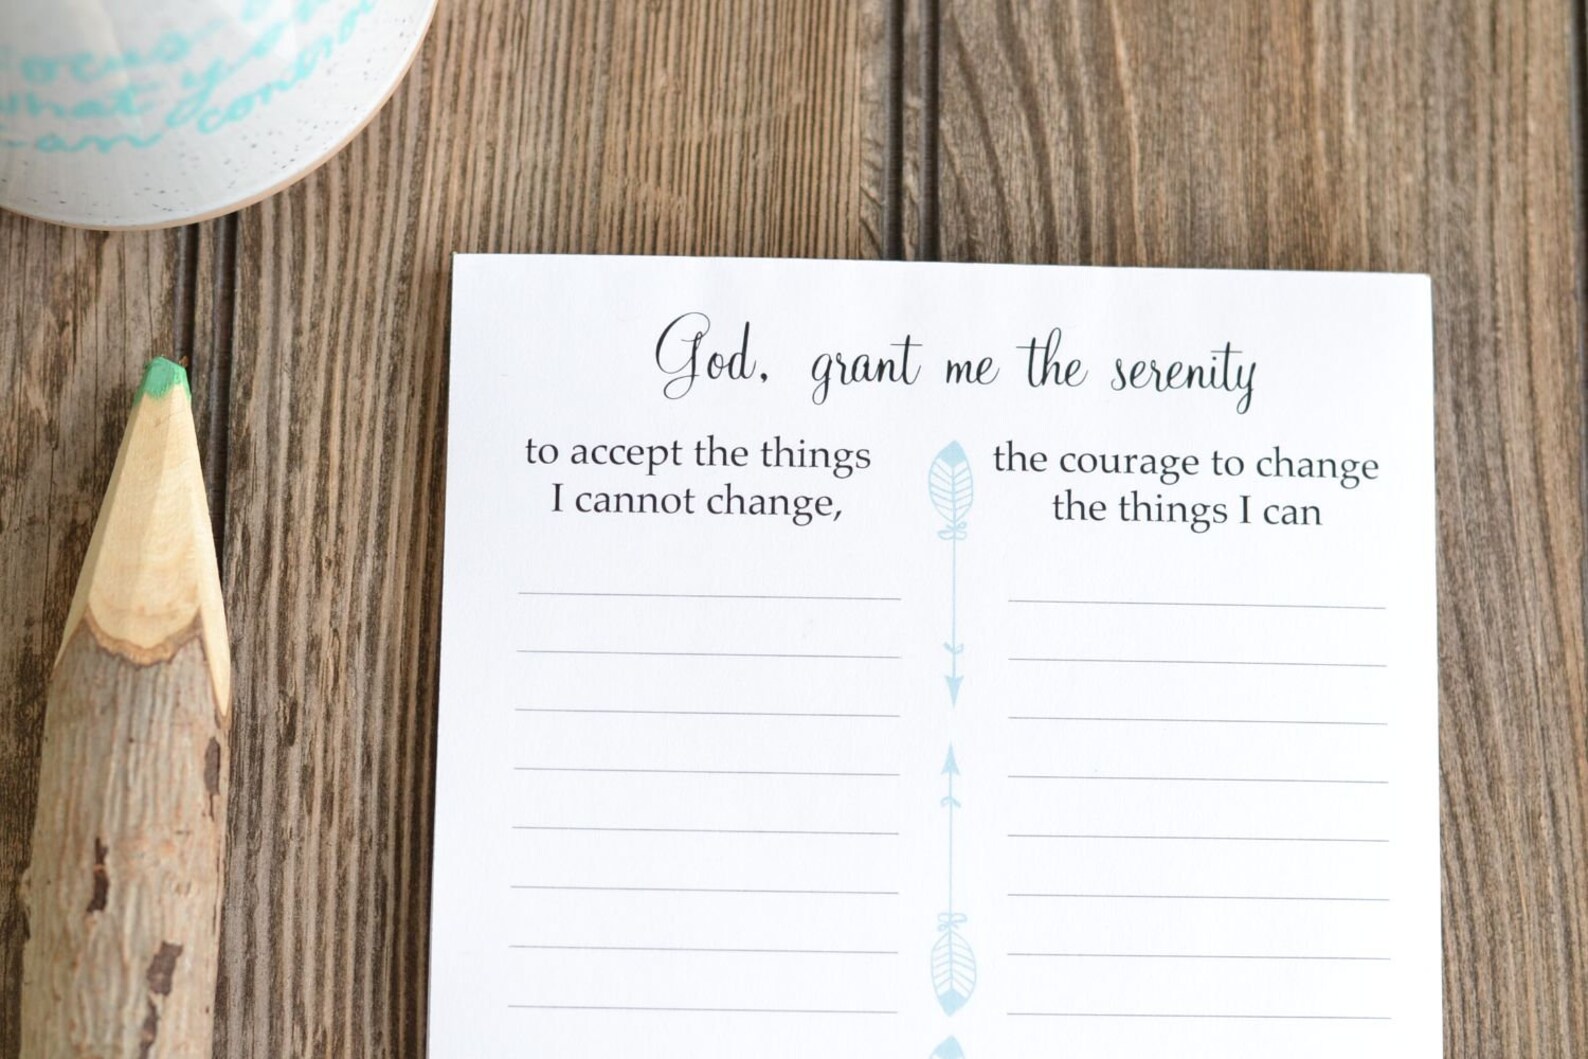 Focus
what you
can control
God, grant me the serenity
to accept the things
I cannot change,
the courage to change
the things I can